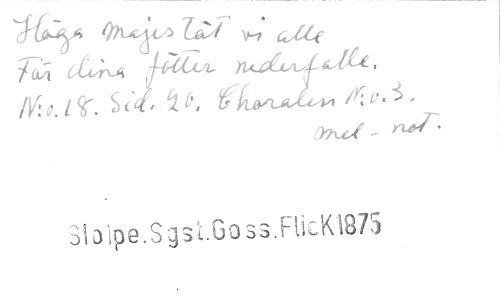 Höga majestät vi alle
För dina fötter nederfalle.
N:o.18. Sid. 20. Choralen N:o.3.
mel-not.
Slolpe.Sgst.Goss.FlicK1875